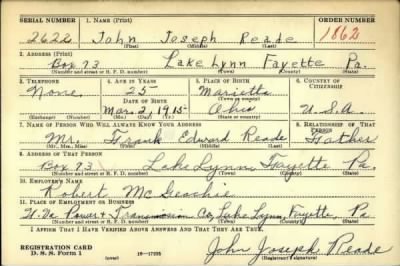 SERIAL NUMBER 1. NAME (Print) ORDER NUMBER
2622 John Joseph Reade 1862
(First) (Middle) (Last)
2. ADDRESS (Print)
Box 73 Lake Lynn Fayette Pa.
(Number and street or R. F. D. number) (Town) (County) (State)
3. TELEPHONE 4. AGE IN YEARS 5. PLACE OF BIRTH 6. COUNTRY OF CITIZENSHIP
None. 25 Marietta
DATE OF BIRTH (Town or county)
Mar. 2, 1915 Ohio U.S.A.
(Exchange) (Number) (Mo.) (Day) (Yr.) (State or country)
7. NAME OF PERSON WHO WILL ALWAYS KNOW YOUR ADDRESS 8. RELATIONSHIP OF THAT PERSON
Mr. Frank Edward Reade Father
(Mr., Mrs., Miss) (First) (Middle) (Last)
9. ADDRESS OF THAT PERSON
Box 73 Lake Lynn, Fayette Pa.
(Number and street or R. F. D. number) (Town) (County) (State)
10. EMPLOYER'S NAME
Robert McGeachie
11. PLACE OF EMPLOYMENT OR BUSINESS
W. Va Power & Transmission Co, Lake Lynn, Fayette, Pa
(Number and street or R. F. D. number) (Town) (County) (State)
I AFFIRM THAT I HAVE VERIFIED ABOVE ANSWERS AND THAT THEY ARE TRUE.
REGISTRATION CARD
D. S. S. Form 1 (over) 16—17105 John Joseph Reade
(Registrant's signature)